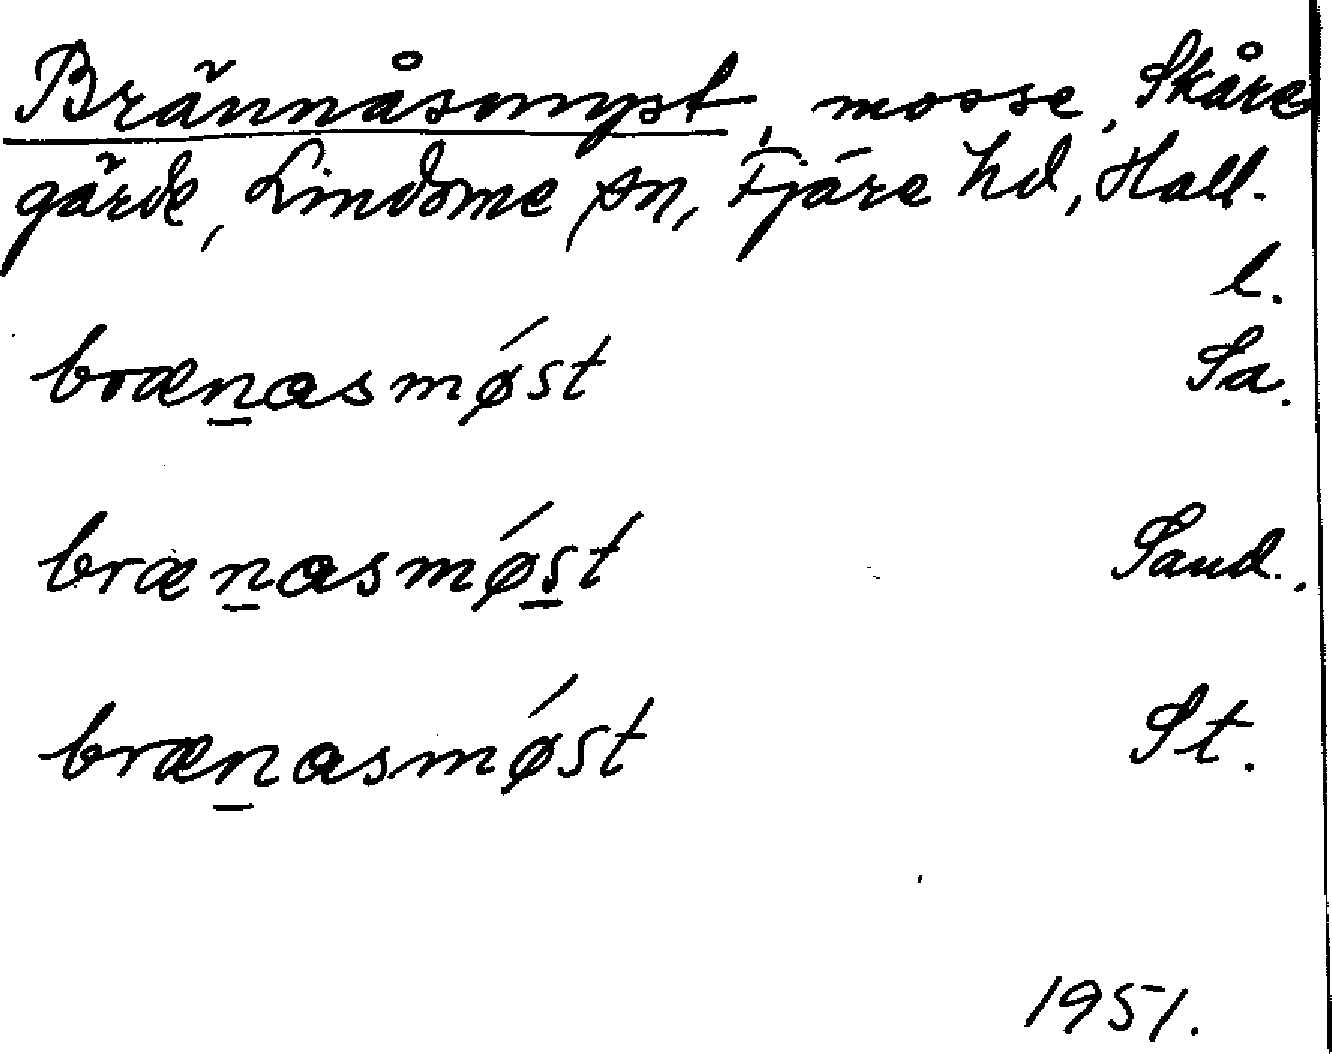 Brännåsmyst, mosse, Skåre
gärde, Lindome sn, Fjäre hd, Hall.
l.
brænasmǿst Sa.
brænasmǿst Sand.
brænasmǿst St.
1951.